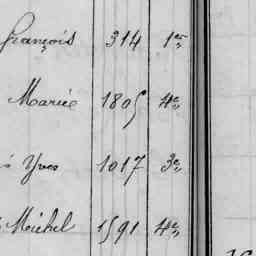 François 314 1er
Marie 1805 4e
Yves 1017 3e
Michel 1591 4e